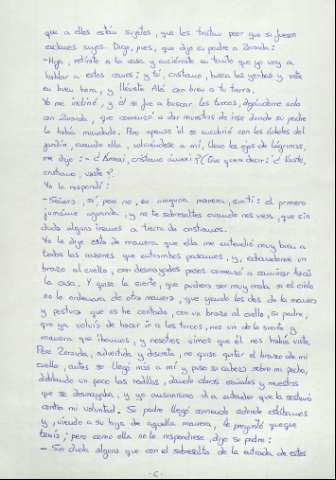 que a ellos están sujetos, que los tratan peor que si fuesen
esclavos suyos. Digo, pues, que dijo su padre a Zoraida:
- Hija, retírate a la casa y enciérrate en tanto que yo voy a
hablar a estos canes; y tú, cristiano, busca tus yerbas y vete
en buen hora, y llévete Alá con bien a tu tierra.
Yo me incliné, y él se fue a buscar los turcos, dejándome solo
con Zoraida, que comenzó a dar muestras de irse donde su padre
la había mandado. Pero apenas él se encubrió con los árboles del
jardín, cuando ella, volviéndose a mí, llenos los ojos de lágrimas,
me dijo: - ¿Ámexi, cristiano, ámexi? (Que quiere decir: ¿Vaste,
cristiano, vaste?.
Yo la respondí:
- Señora, sí, pero no, en ninguna manera, sin ti: el primero
jumá me aguarda, y no te sobresaltes cuando nos veas, que sin
duda alguna iremos a tierra de cristianos.
Yo le dije esto de manera que ella me entendió muy bien a
todas las razones que entrambos pasamos, y, echándome un
brazo al cuello, con desmayados pasos comenzó a caminar hacia
la casa. Y quiso la suerte, que pudiera ser muy mala si el cielo
no lo ordenara de otra manera, que yendo los dos de la manera
y postura que os he contado, con un brazo al cuello, su padre,
que ya volvía de hacer ir a los turcos, nos vio de la suerte y
manera que íbamos, y nosotros vimos que él nos había visto.
Pero Zoraida, advertida y discreta, no quiso quitar el brazo de mi
cuello, antes se llegó más a mí y puso su cabeza sobre mi pecho,
doblando un poco las rodillas, dando claras señales y muestras
que se desmayaba, y yo ansimismo di a entender que la sostenía
contra mi voluntad. Su padre llegó corriendo adonde estábamos
y, viendo a su hija de aquella manera, le preguntó que qué
tenía; pero como ella no le respondiese, dijo su padre:
- Sin duda alguna que con el sobresalto de la entrada de estos
-6-